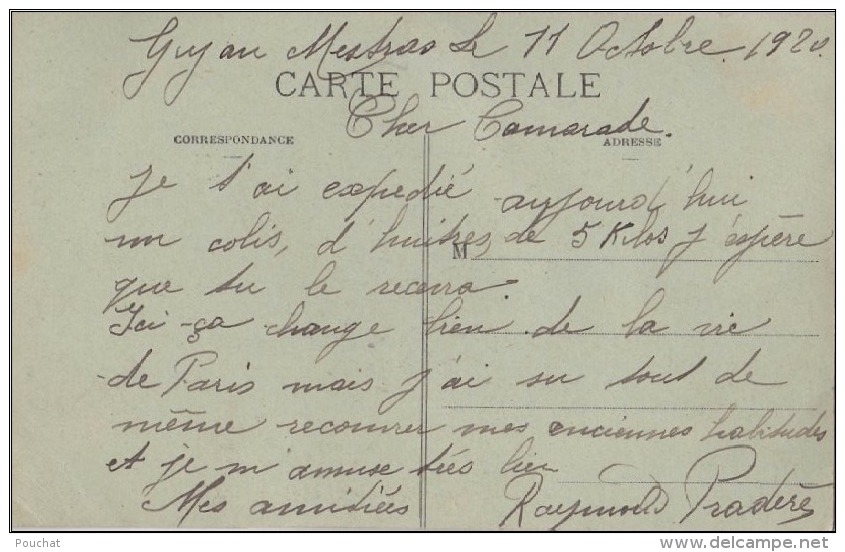 Gujan Mestras le 11 Octobre 1920.
CARTE POSTALE
Cher Camarade.
CORRESPONDANCE
ADRESSE
Je t'ai expedié aujourd'hui
un colis, d'huitres, de 5 Kilos j'éspère
M
que tu le recevra
Ici ça change bien de la vie
de Paris mais j'ai su tout de
même recouvrer mes anciennes habitudes
et je m'amuse très bien
Mes amitiés Raymond Pradère
Pouchat
www.delcampe.net